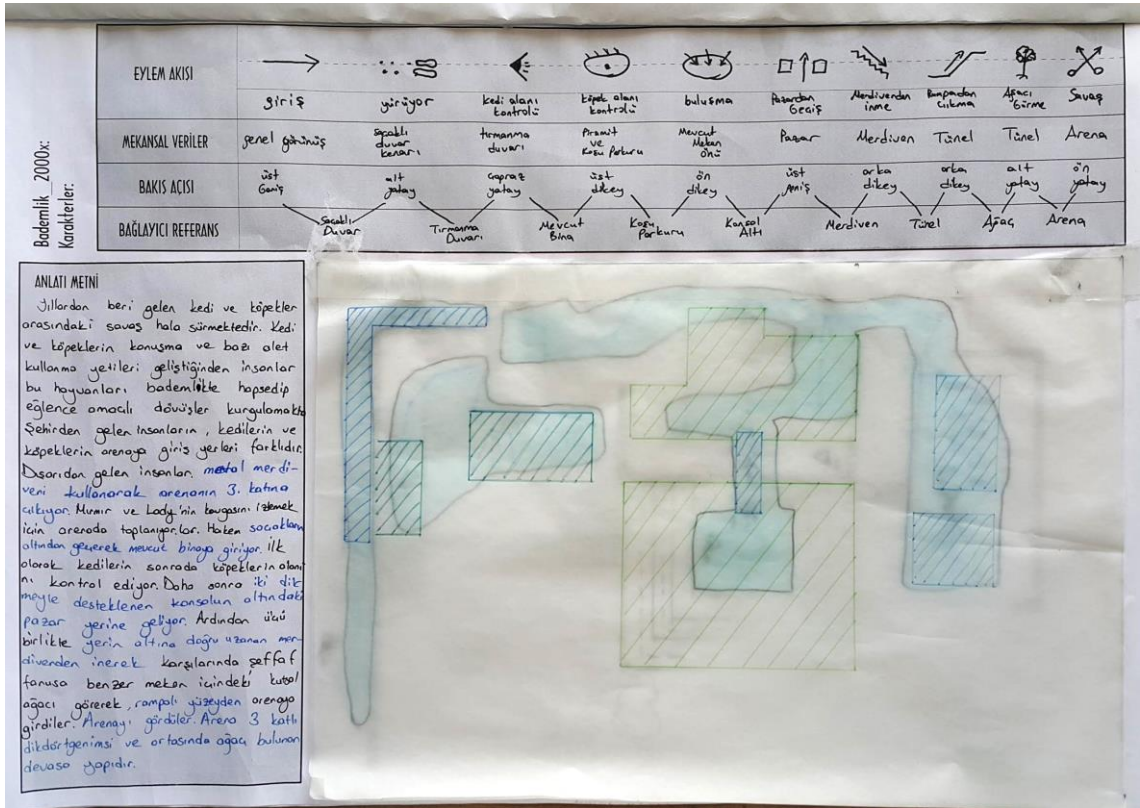 Bademlik_2000x:
Karakterler:
EYLEM AKISI
giriş
yürüyor
kedi alanı kontrolü
köpek alanı kontrolü
buluşma
Pazardan Geçiş
Merdivenden inme
Rampadan çıkma
Ağacı Görme
Savaş
MEKANSAL VERİLER
genel görünüş
Saçaklı duvar kenarı
tırmanma duvarı
Piramit ve Koşu Parkuru
Mevcut Mekan önü
Pazar
Merdiven
Tünel
Tünel
Arena
BAKIS AÇISI
üst Geniş
alt yatay
Çapraz yatay
üst dikey
ön dikey
üst geniş
arka dikey
arka dikey
alt yatay
ön yatay
BAĞLAYICI REFERANS
Saçaklı Duvar
Tırmanma Duvarı
Mevcut Bina
Koşu Parkuru
Konsol Altı
Merdiven
Tünel
Ağaç
Arena
ANLATI METNİ
Yıllardan beri gelen kedi ve köpekler
arasındaki savaş hala sürmektedir. Kedi
ve köpeklerin konuşma ve bazı alet
kullanma yetileri geliştiğinden insanlar
bu hayvanları bademlikte hapsedip
eğlence amaçlı dövüşler kurgulamakta
Şehirden gelen insanların, kedilerin ve
köpeklerin arenaya giriş yerleri farklıdır.
Dışarıdan gelen insanlar metal merdi-
veni kullanarak arenanın 3. katına
çıkıyor. Mırnır ve Lady'nin kavgasını izlemek
için arenada toplanıyorlar. Hakem saçakların
altından geçerek mevcut binaya giriyor. İlk
olarak kedilerin sonrada köpeklerin alanı
nı kontrol ediyor. Daha sonra iki dik
meyle desteklenen konsolun altındaki
pazar yerine geliyor. Ardından üçü
birlikte yerin altına doğru uzanan mer-
divenden inerek karşılarında şeffaf
fanusa benzer mekan içindeki kutsal
ağacı görerek, rampalı yüzeyden arenaya
girdiler. Arenayı gördüler. Arena 3 katlı
dikdörtgenimsi ve ortasında ağacı bulunan
devasa yapıdır.